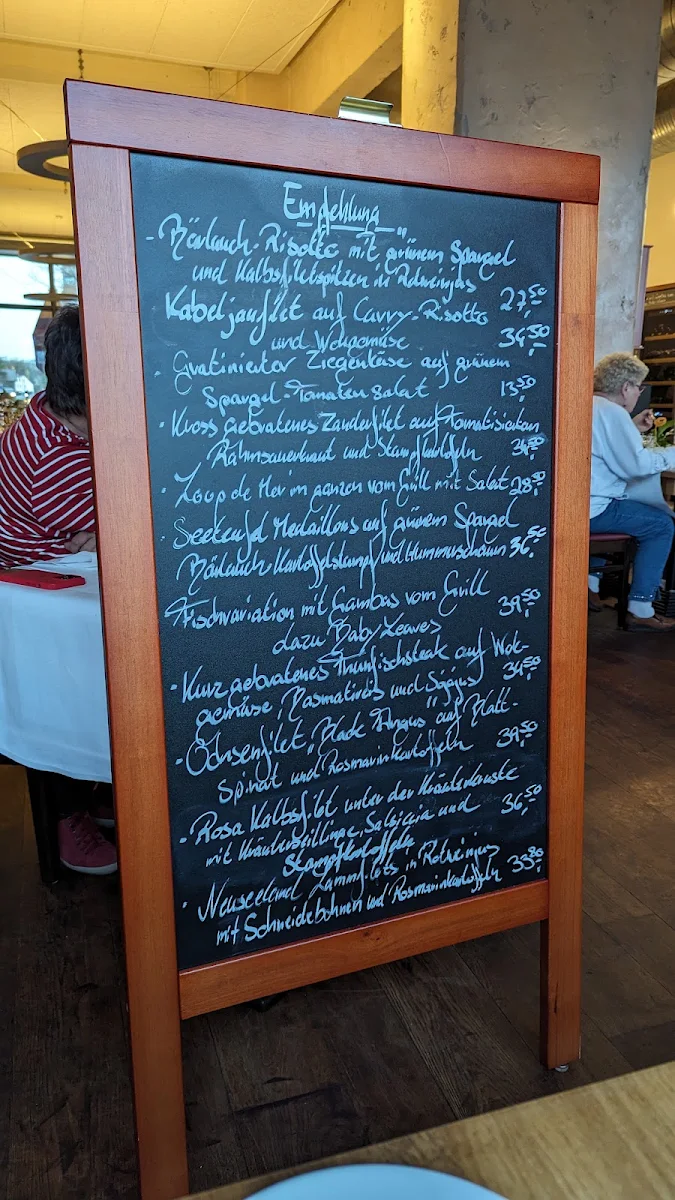 Empfehlung
- Bärlauch-Risotto mit grünem Spargel
und Kalbsfiletspitzen in Rotweinjus 27,50
Kabeljaufilet auf Curry-Risotto
und Wokgemüse 34,50
- Gratinierter Ziegenkäse auf grünem
Spargel-Tomatensalat 13,50
- Kross gebratenes Zanderfilet auf Tomatisierten
Rahmsauerkraut und Stampfkartoffeln
- Loup de Mer im ganzen vom Grill mit Salat 28,50
- Seeteufel Medaillons auf grünem Spargel
Bärlauch-Kartoffelstampf und Hummerschaum 36,50
Fischvariation mit Gambas vom Grill
dazu Baby Leaves 39,50
- Kurz gebratenes Thunfischsteak auf Wok-
gemüse, Basmatireis und Sojajus 34,50
- Ochsenfilet "Black Angus" auf Blatt-
Spinat und Rosmarinkartoffeln 39,50
- Rosa Kalbsfilet unter der Kräuterkruste
mit Kräuterseitlinge, Salsiccia und 36,50
Stampfkartoffeln
- Neuseeland Lammfilets in Rotweinjus
mit Schneidebohnen und Rosmarinkartoffeln 33,80